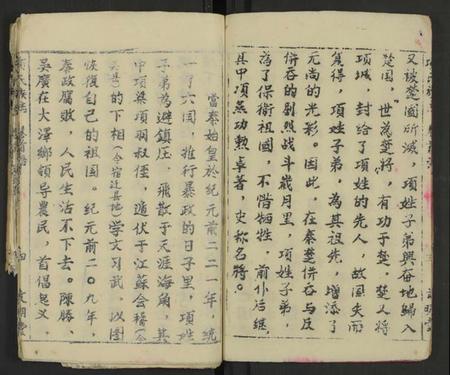 又被楚國所滅，項姓子弟興奋地歸入
楚国，世為楚將，有功于楚，楚人將
項城，封给了項姓的先人，故国失而
復得，項姓子弟，為其祖先，增添了
无尚的光彩。因此，在秦楚併吞与反
併吞的剧烈战斗歲月里，項姓子弟，
為了保衛祖國，不惜牺牲，前仆后継，
其中項燕功勲卓著，史称名將。
當秦始皇於紀元前二二一年，统
一了六国，推行暴政的日子里，項姓
子弟為避鎮压，飛散于天涯海角，其
中項梁項羽叔侄，遁伏于江蘇会稽今
吴县的下相(今宿迁县地)学文习武，以图
恢復自己的祖国。纪元前二0九年，
秦政腐敗，人民生活不下去。陳勝、
吴廣在大澤鄉领导農民，首倡起义，